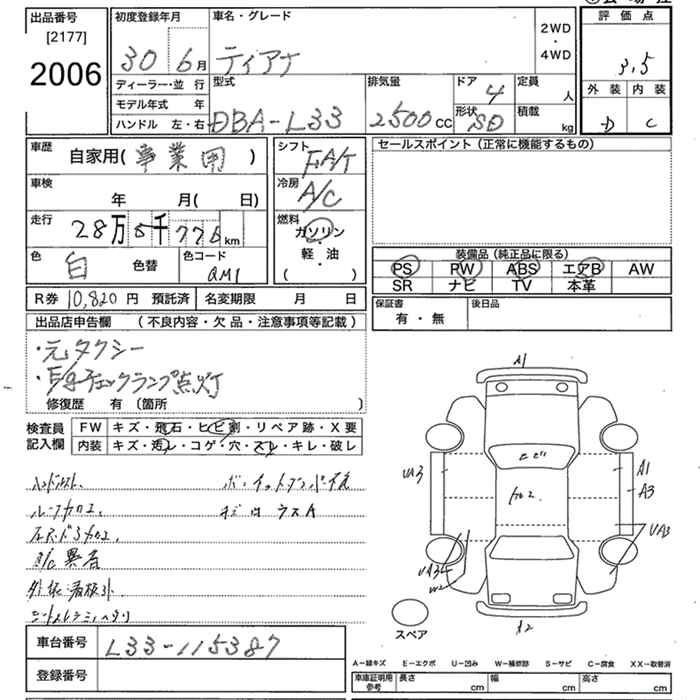 出品番号
[2177]
2006
初度登録年月
30 6月
車名・グレード
ティアナ
2WD
・
4WD
評価点
3.5
外装 内装
D C
ディーラー・並行
モデル年式 年
ハンドル 左・右
型式
DBA-L33
排気量
2500cc
ドア
4
形状
SD
定員
人
積載
kg
車歴
自家用(事業用)
シフト
FA/T
セールスポイント(正常に機能するもの)
車検
年 月( 日)
冷房
A/C
走行
28万5千775km
燃料
ガソリン
・
軽・油
( )
色
白
色替
色コード
QM1
装備品(純正品に限る)
PS PW ABS エアB AW
SR ナビ TV 本革
R券 10,820円 預託済
名変期限 月 日
保証書
有・無
後日品
出品店申告欄 (不良内容・欠品・注意事項等記載)
・元タクシー
・E/gチェックランプ点灯
修復歴 有(箇所 )
検査員
記入欄
FW キズ・飛石・ヒビ割・リペア跡・X要
内装 キズ・汚レ・コゲ・穴・スレ・キレ・破レ
ルーフカロエ
A/C異音
A1
ヒビ
UA3
A1
A3
UA3
UA34
W2
カロエ
スペア
車台番号
L33-115387
登録番号
A-線キズ E-エクボ U-凹み W-補修跡 S-サビ C-腐食 XX-取替済
車庫証明用
参考
長さ cm
幅 cm
高さ cm